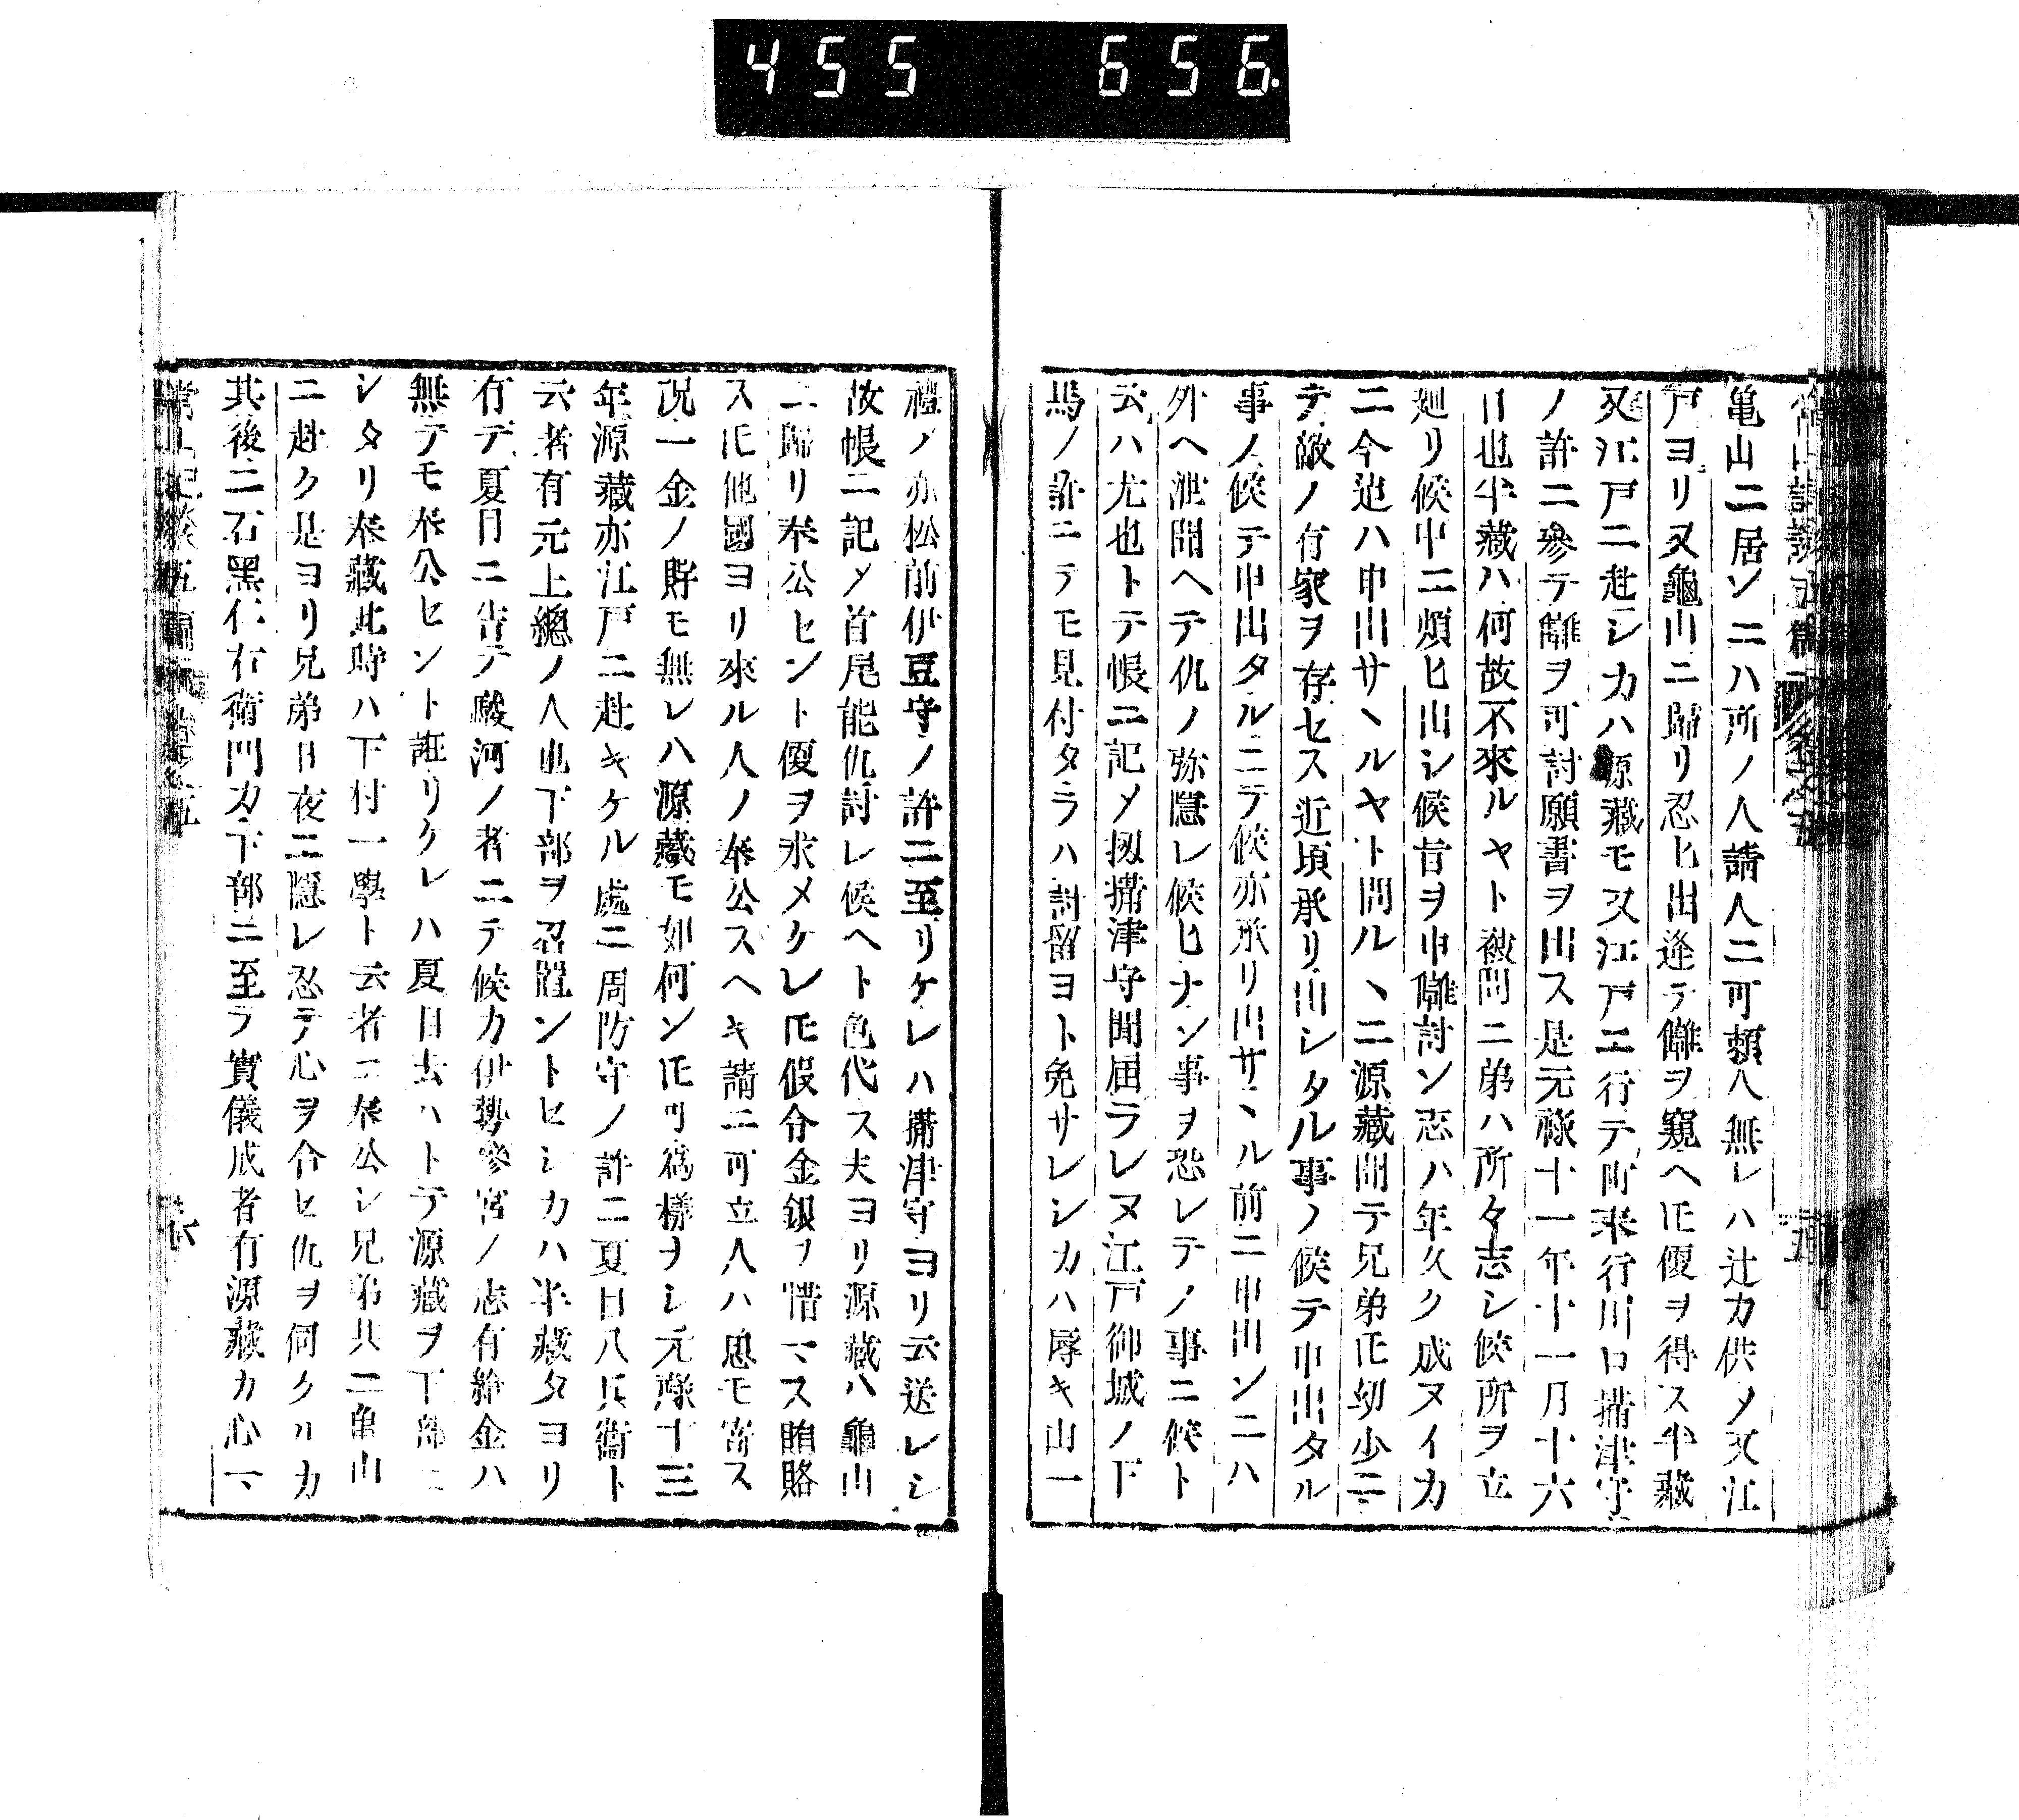 455 656.
亀山ニ居ンニハ所ノ人請人ニ可頼人無レハ辻カ供メ又江
戸ヨリ又龜山ニ歸リ忍ヒ出逢テ讎ヲ窺ヘ𪜈便ヲ得ス半藏
又江戸ニ赴シカハ源藏モ又江戸ニ行テ町奉行川口攝津守
ノ許ニ參テ讎ヲ可討願書ヲ出ス是元祿十一年十一月十六
日也半藏ハ何故不來ルヤト被問ニ弟ハ所々志シ候所ヲ立
廻リ候申ニ煩ヒ出シ候旨ヲ申讎討ン志ハ年久ク成ヌイカ
ニ今迠ハ申出サヽルヤト問ルヽニ源藏聞テ兄弟𪜈幼少ニ
テ敵ノ有家ヲ存セス近頃承リ出シタル事ノ候テ申出タル
事ノ候テ申出タルニテ候亦承リ出サヽル前ニ申出ンニハ
外ヘ泄聞ヘテ仇ノ弥隱レ候ヒナン事ヲ恐レテノ事ニ候ト
云ハ尤也トテ帳ニ記メ扨攝津守聞届ラレヌ江戸御城ノ下
馬ノ許ニテモ見付タラハ討留ヨト免サレシカハ辱キ山一
禮ノ亦松前伊豆守ノ許ニ至リケレハ攝津守ヨリ云送レシ
故帳ニ記メ首尾能仇討レ候ヘト色代ス夫ヨリ源藏ハ龜山
ニ歸リ奉公セント便ヲ求メケレ𪜈假令金銀ヲ惜マス賄賂
ス𪜈他國ヨリ來ル人ノ奉公スヘキ請ニ可立人ハ思モ寄ス
况一金ノ貯モ無レハ源藏モ如何ン𪜈可爲樣ヲシ元祿十三
年源藏亦江戸ニ赴キケル處ニ周防守ノ許ニ夏目八兵衞ト
云者有元上總ノ人也下部ヲ召置ントセシカハ半藏タヨリ
有テ夏目ニ告テ駿河ノ者ニテ候カ伊勢參宮ノ志有給金ハ
無テモ奉公セント誑リケレハ夏目去ハトテ源藏ヲ下部ニ
シタリ奉藏此時ハ下付一學ト云者ニ奉公シ兄弟共ニ亀山
ニ赴ク是ヨリ兄弟日夜ニ隱レ忍テ心ヲ合セ仇ヲ伺クルカ
其後ニ石黑仁右衞門カ下部ニ至ラ實儀成者有源藏カ心マ
常山紀談五
六